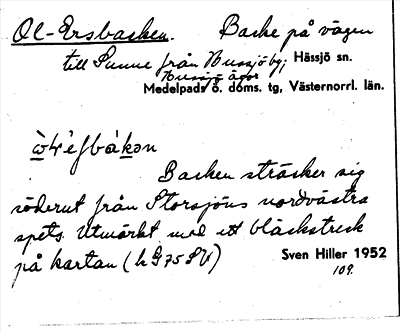 Ol-Ersbacken. Backe på vägen
till Sunne från Hussjöby; Hässjö sn.
Hussjö ägor
Medelpads ö. doms. tg, Västernorrl. län.
Backen sträcker sig
söderut från Storsjöns nordvästra
spets. Utmärkt med ett bläckstreck
på kartan (hG75SV) Sven Hiller 1952
109.